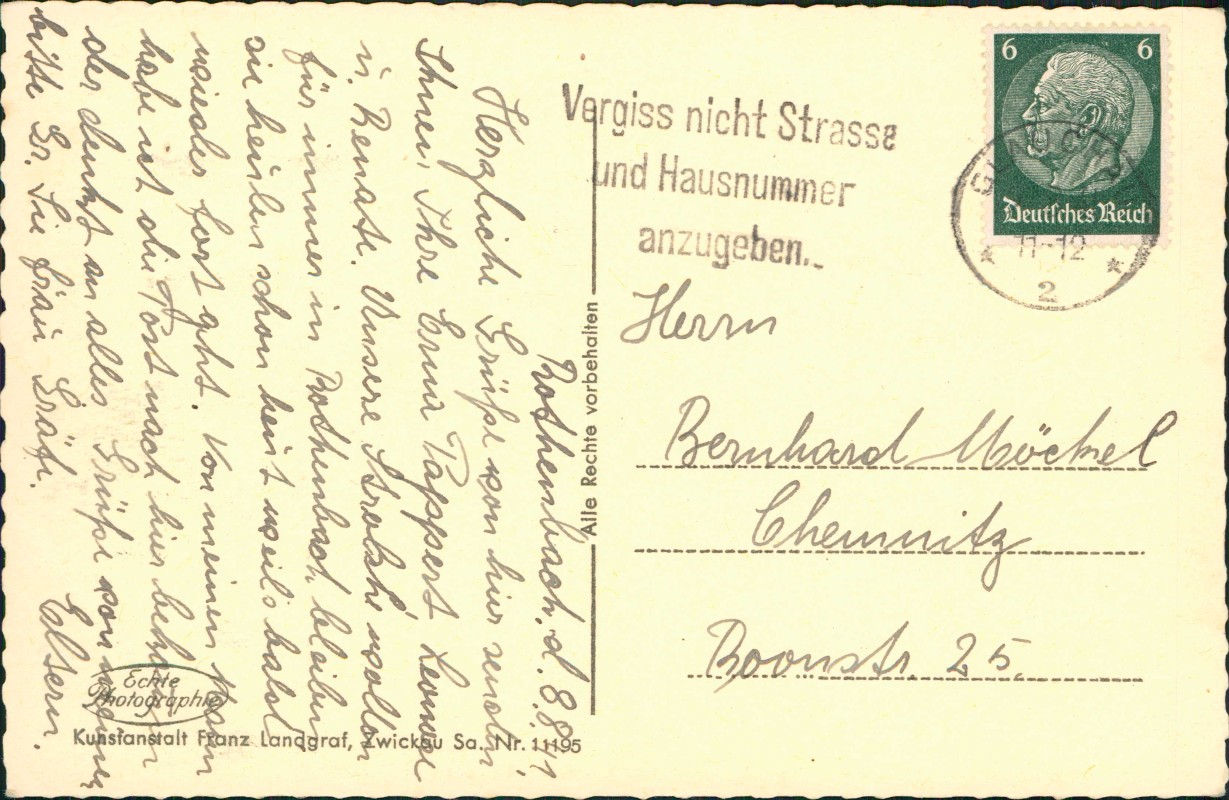 Rothenbach, d. 8.8.41
Herzliche Grüße von hier senden
Ihnen, Ihre Erna Tappert Leonore
u. Renate. Unsere Strolche wollen
für immer in Rothenbach bleiben
sie heulen schon heut weils bald
wieder fort geht. Von meinen Mann
habe ich die Post nach hier
der denkt an alles Grüße von meinen
Eltern.
bitte Gr. Sie Frau Gräfe.
Vergiss nicht Strasse
und Hausnummer
anzugeben.
6 6
Deutsches Reich
11-12
2
Herrn
Bernhard Möckel
Chemnitz
Roonstr. 25.
Alle Rechte vorbehalten
Echte
Photographie
Kunstanstalt Franz Landgraf, Zwickau Sa. Nr. 11195